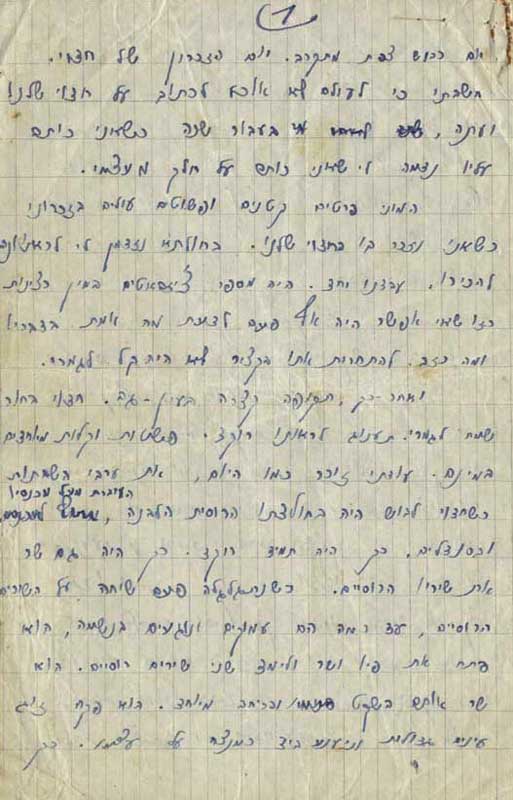 1
יום כבוש צפת מתקרב. יום הזכרון של חצוי.
חשבתי כי לעולם לא אוכל לכתוב על חצוי שלנו
ועתה, בעבור שנה כשאני כותב
עליו נדמה לי שאני כותב על חלק מעצמי.
המוני פרטים קטנים ופשוטים עולים בזכרוני
כשאני נזכר בו בחצוי שלנו. בחולתא נזדמן לי לראשונה
להכירו. עבדנו יחד. היה מספר צ'יזבאטים במין רצינות
כזו שאי אפשר היה אף פעם לדעת מה אמת בדבריו
ומה כזב. להתחרות אתו בקציר לא היה קל לגמרי.
ואחר-כך, תקופה קצרה בעין-גב. חצוי בחור
שמח לגמרי. תענוג לראותו רוקד. פשטות וקלות מאוחדים
במינם. עודני זוכר כמו היום, את ערבי השבתות
כשחצוי לבוש היה בחולצתו הרוסית הלבנה, העוברת מעל מכנסיו
וסנדלים. כך היה תמיד רוקד. כך היה גם שר
את שיריו הרוסיים. כשנתגלגלה פעם שיחה על השירים
הרוסיים, עד כמה הם עמוקים ונוגעים בנשמה, הוא
פתח את פיו ושר ולימד שני שירים רוסיים. הוא
שר אותם השקט ובריחה מיוחד. הוא פקח זוג
עינים גדולות וניענע ביד כמנצח על עצמו. כך